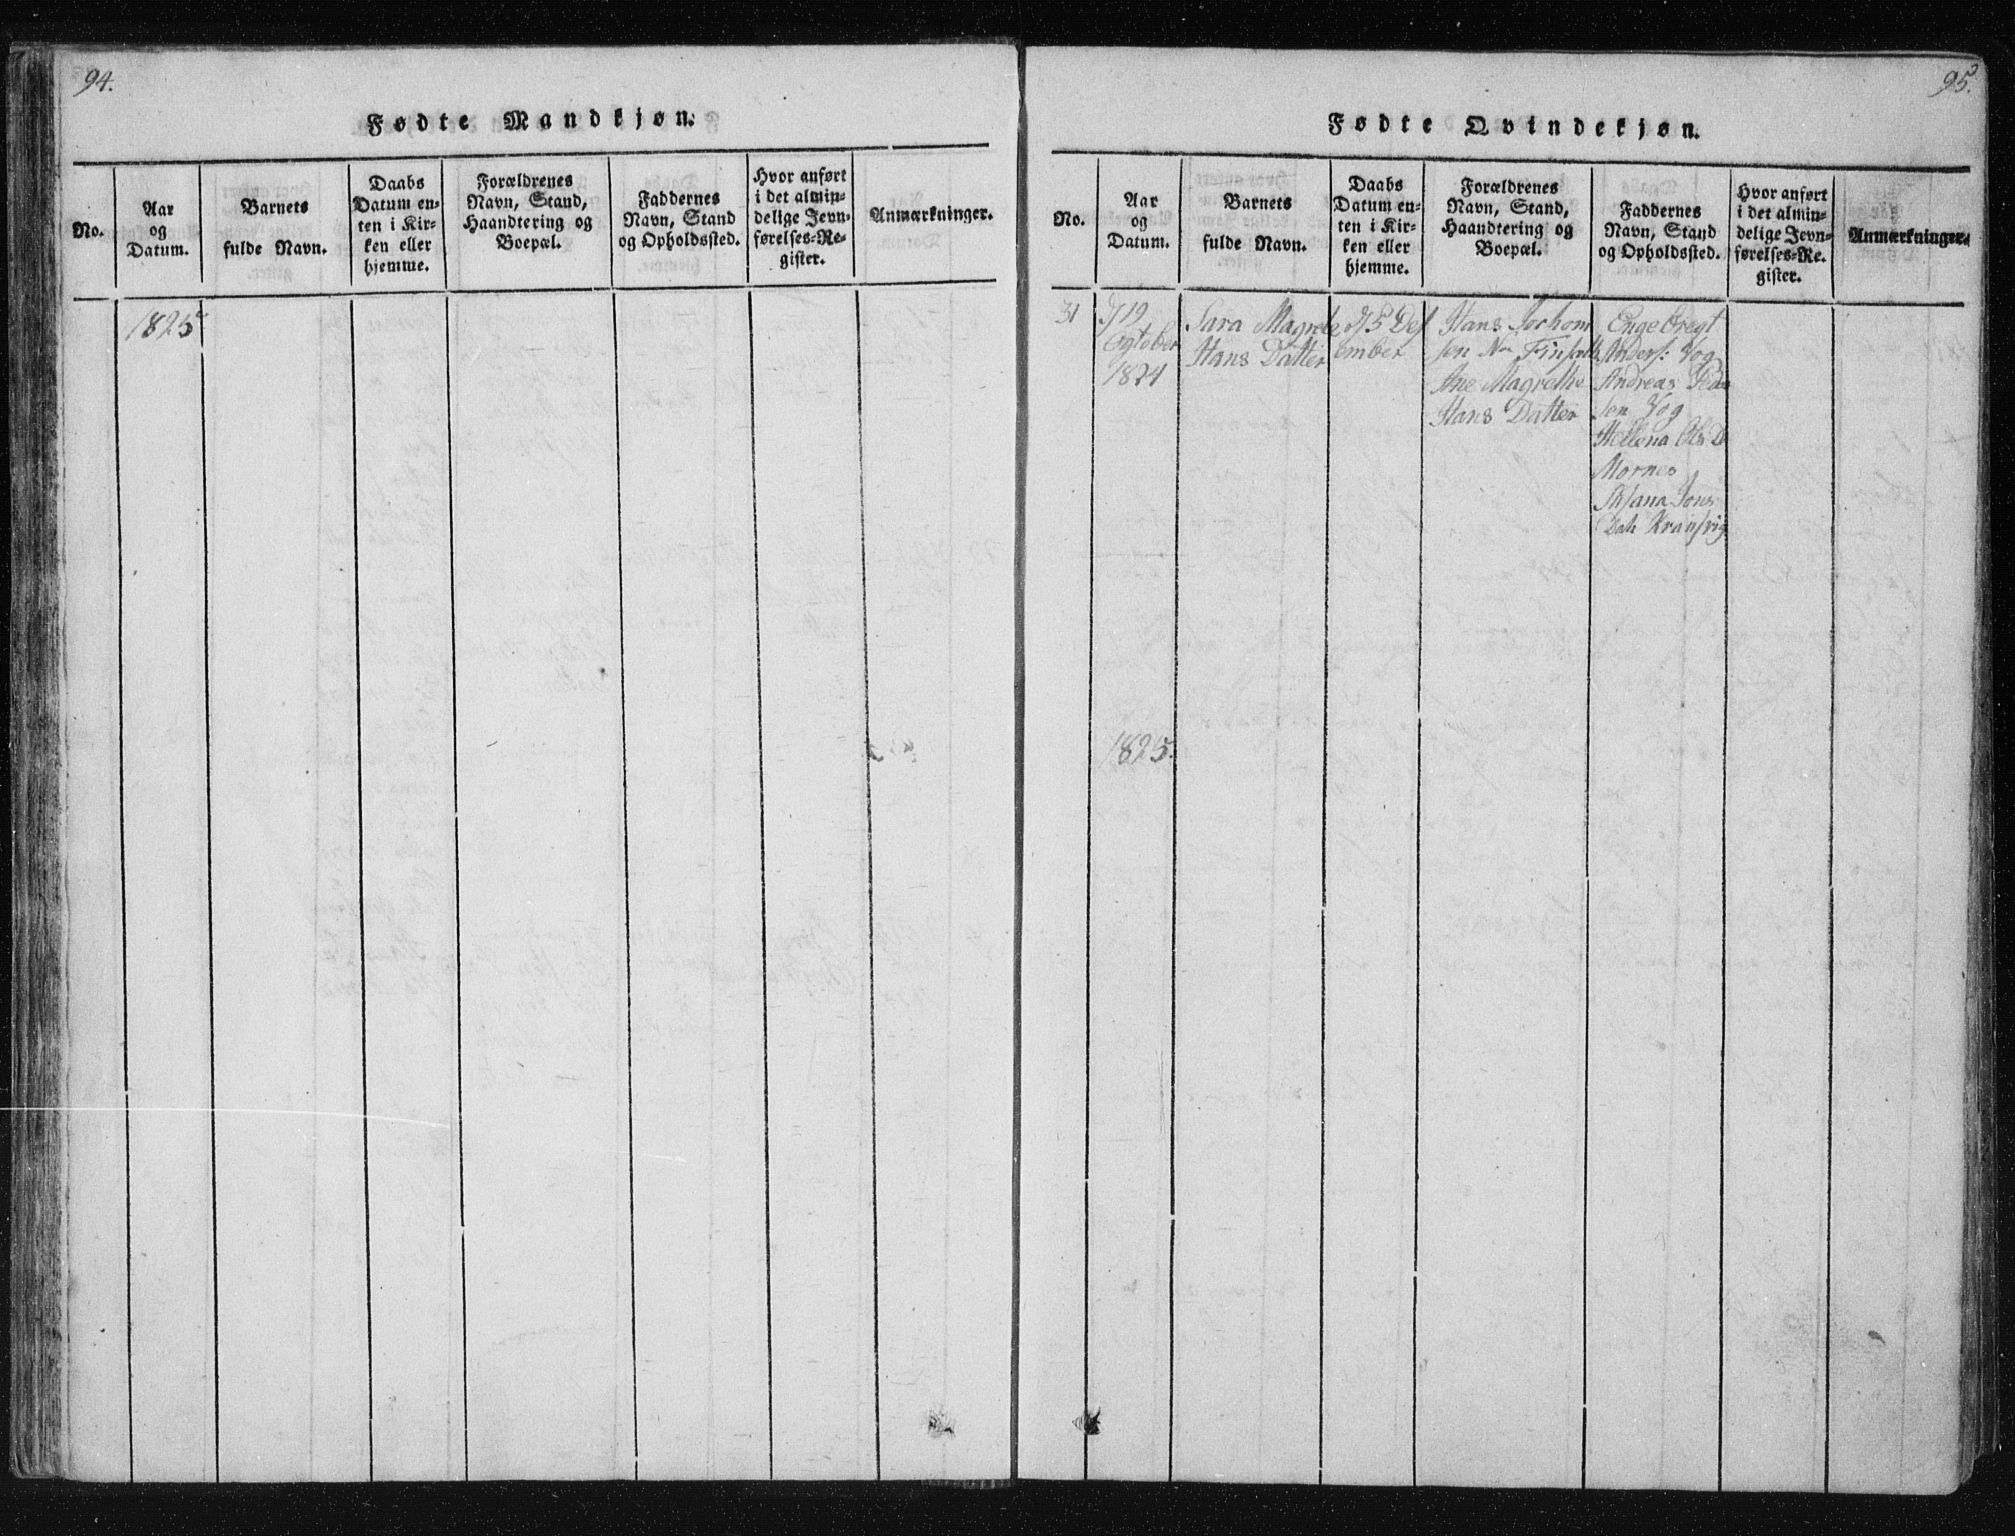 94.
Fødte Mandkjøn.
No.
Aar
og
Datum.
Barnets
fulde Navn.
Daabs
Datum en-
ten i Kir-
ken eller
hjemme.
Forældrenes
Navn, Stand,
Haandtering og
Boepæl.
Faddernes
Navn, Stand
og Opholdssted.
Hvor anført
i det almin-
delige Jevn-
førelses-Re-
gister.
Anmærkninger.
1825
95.
Fødte Qvindekjøn.
No.
Aar
og
Datum.
Barnets
fulde Navn.
Daabs
Datum en-
ten i Kir-
ken eller
hjemme.
Forældrenes
Navn, Stand,
Haandtering og
Boepæl.
Faddernes
Navn, Stand
og Opholdssted.
Hvor anført
i det almin-
delige Jevn-
førelses-Re-
gister.
Anmærkninger.
31
19
Ogtober
1824
Sara Magrete
Hans Datter
5 Des
ember
Hans Jochom
sen
Ane Magrethe
Hans Datter
Engebregt
Anders: Vog
Andreas
sen Vog
Hellena Ols D
Mornes
Jons
Datr
1825.